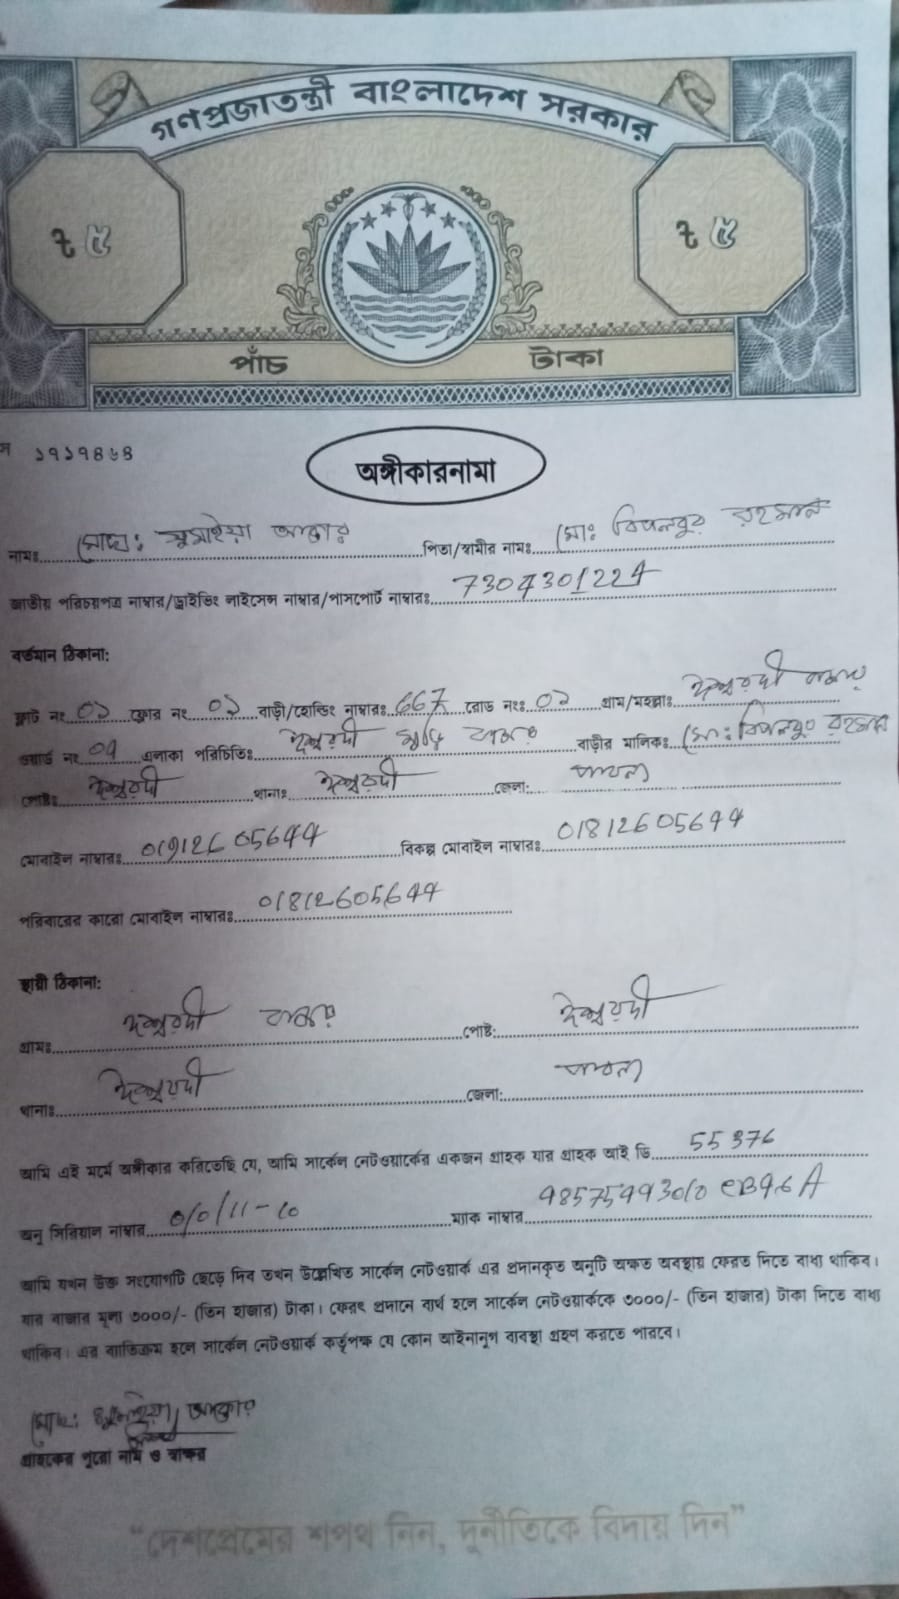 গণপ্রজাতন্ত্রী বাংলাদেশ সরকার
৳ ৫ ৳ ৫
পাঁচ টাকা
১৭১৭৪৬৪
অঙ্গীকারনামা
নামঃ মোছা: সুমাইয়া আক্তার পিতা/স্বামীর নামঃ মো: রহমান
জাতীয় পরিচয়পত্র নাম্বার/ড্রাইভিং লাইসেন্স নাম্বার/পাসপোর্ট নাম্বারঃ 7304301224
বর্তমান ঠিকানা:
ফ্লাট নং ০১ ফ্লোর নং ০১ বাড়ী/হোল্ডিং নাম্বারঃ 667 রোড নংঃ ০১ গ্রাম/মহল্লাঃ ঈশ্বরদী বাজার
ওয়ার্ড নং ০৭ এলাকা পরিচিতিঃ ঈশ্বরদী বাজার বাড়ীর মালিকঃ মো: রহমান
পোষ্টঃ ঈশ্বরদী থানাঃ ঈশ্বরদী জেলা: পাবনা
মোবাইল নাম্বারঃ 01912605644 বিকল্প মোবাইল নাম্বারঃ 01812605644
পরিবারের কারো মোবাইল নাম্বারঃ 01812605644
স্থায়ী ঠিকানা:
গ্রামঃ ঈশ্বরদী বাজার পোষ্ট: ঈশ্বরদী
থানাঃ ঈশ্বরদী জেলা: পাবনা
আমি এই মর্মে অঙ্গীকার করিতেছি যে, আমি সার্কেল নেটওয়ার্কের একজন গ্রাহক যার গ্রাহক আই ডি 55376
অনু সিরিয়াল নাম্বার 0/0/11-10 ম্যাক নাম্বার
আমি যখন উক্ত সংযোগটি ছেড়ে দিব তখন উল্লেখিত সার্কেল নেটওয়ার্ক এর প্রদানকৃত অনুটি অক্ষত অবস্থায় ফেরত দিতে বাধ্য থাকিব।
যার বাজার মূল্য ৩০০০/- (তিন হাজার) টাকা। ফেরৎ প্রদানে ব্যর্থ হলে সার্কেল নেটওয়ার্ককে ৩০০০/- (তিন হাজার) টাকা দিতে বাধ্য
থাকিব। এর ব্যতিক্রম হলে সার্কেল নেটওয়ার্ক কর্তৃপক্ষ যে কোন আইনানুগ ব্যবস্থা গ্রহণ করতে পারবে।
মোছা: সুমাইয়া আক্তার
গ্রাহকের পুরো নাম ও স্বাক্ষর
“দেশপ্রেমের শপথ নিন, দুর্নীতিকে বিদায় দিন”